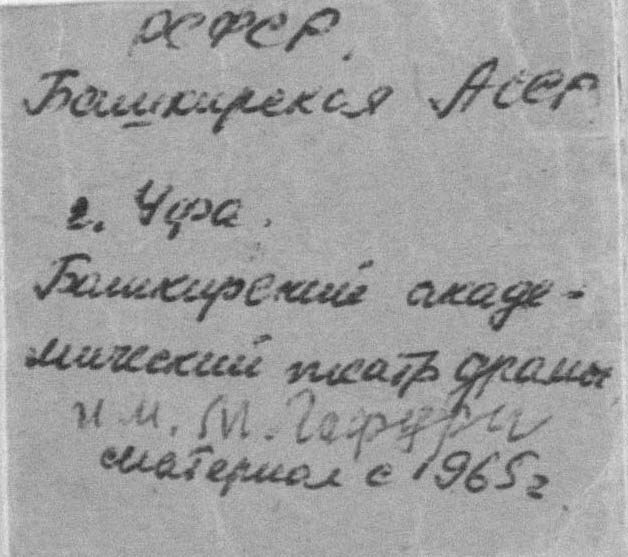 РСФСР.
Башкирская АССР
г. Уфа.
Башкирский акаде-
мический театр драмы
им. М. Гафури
материал с 1965г.